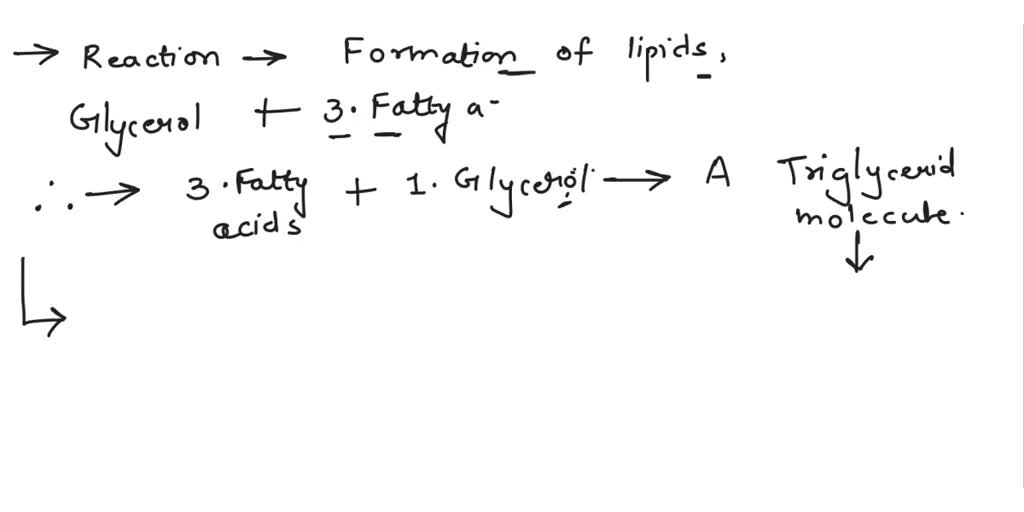 → Reaction → Formation of lipids,
Glycerol + 3. Fatty a
∴ → 3. Fatty acids + 1. Glycerol → A Triglycerid molecule.